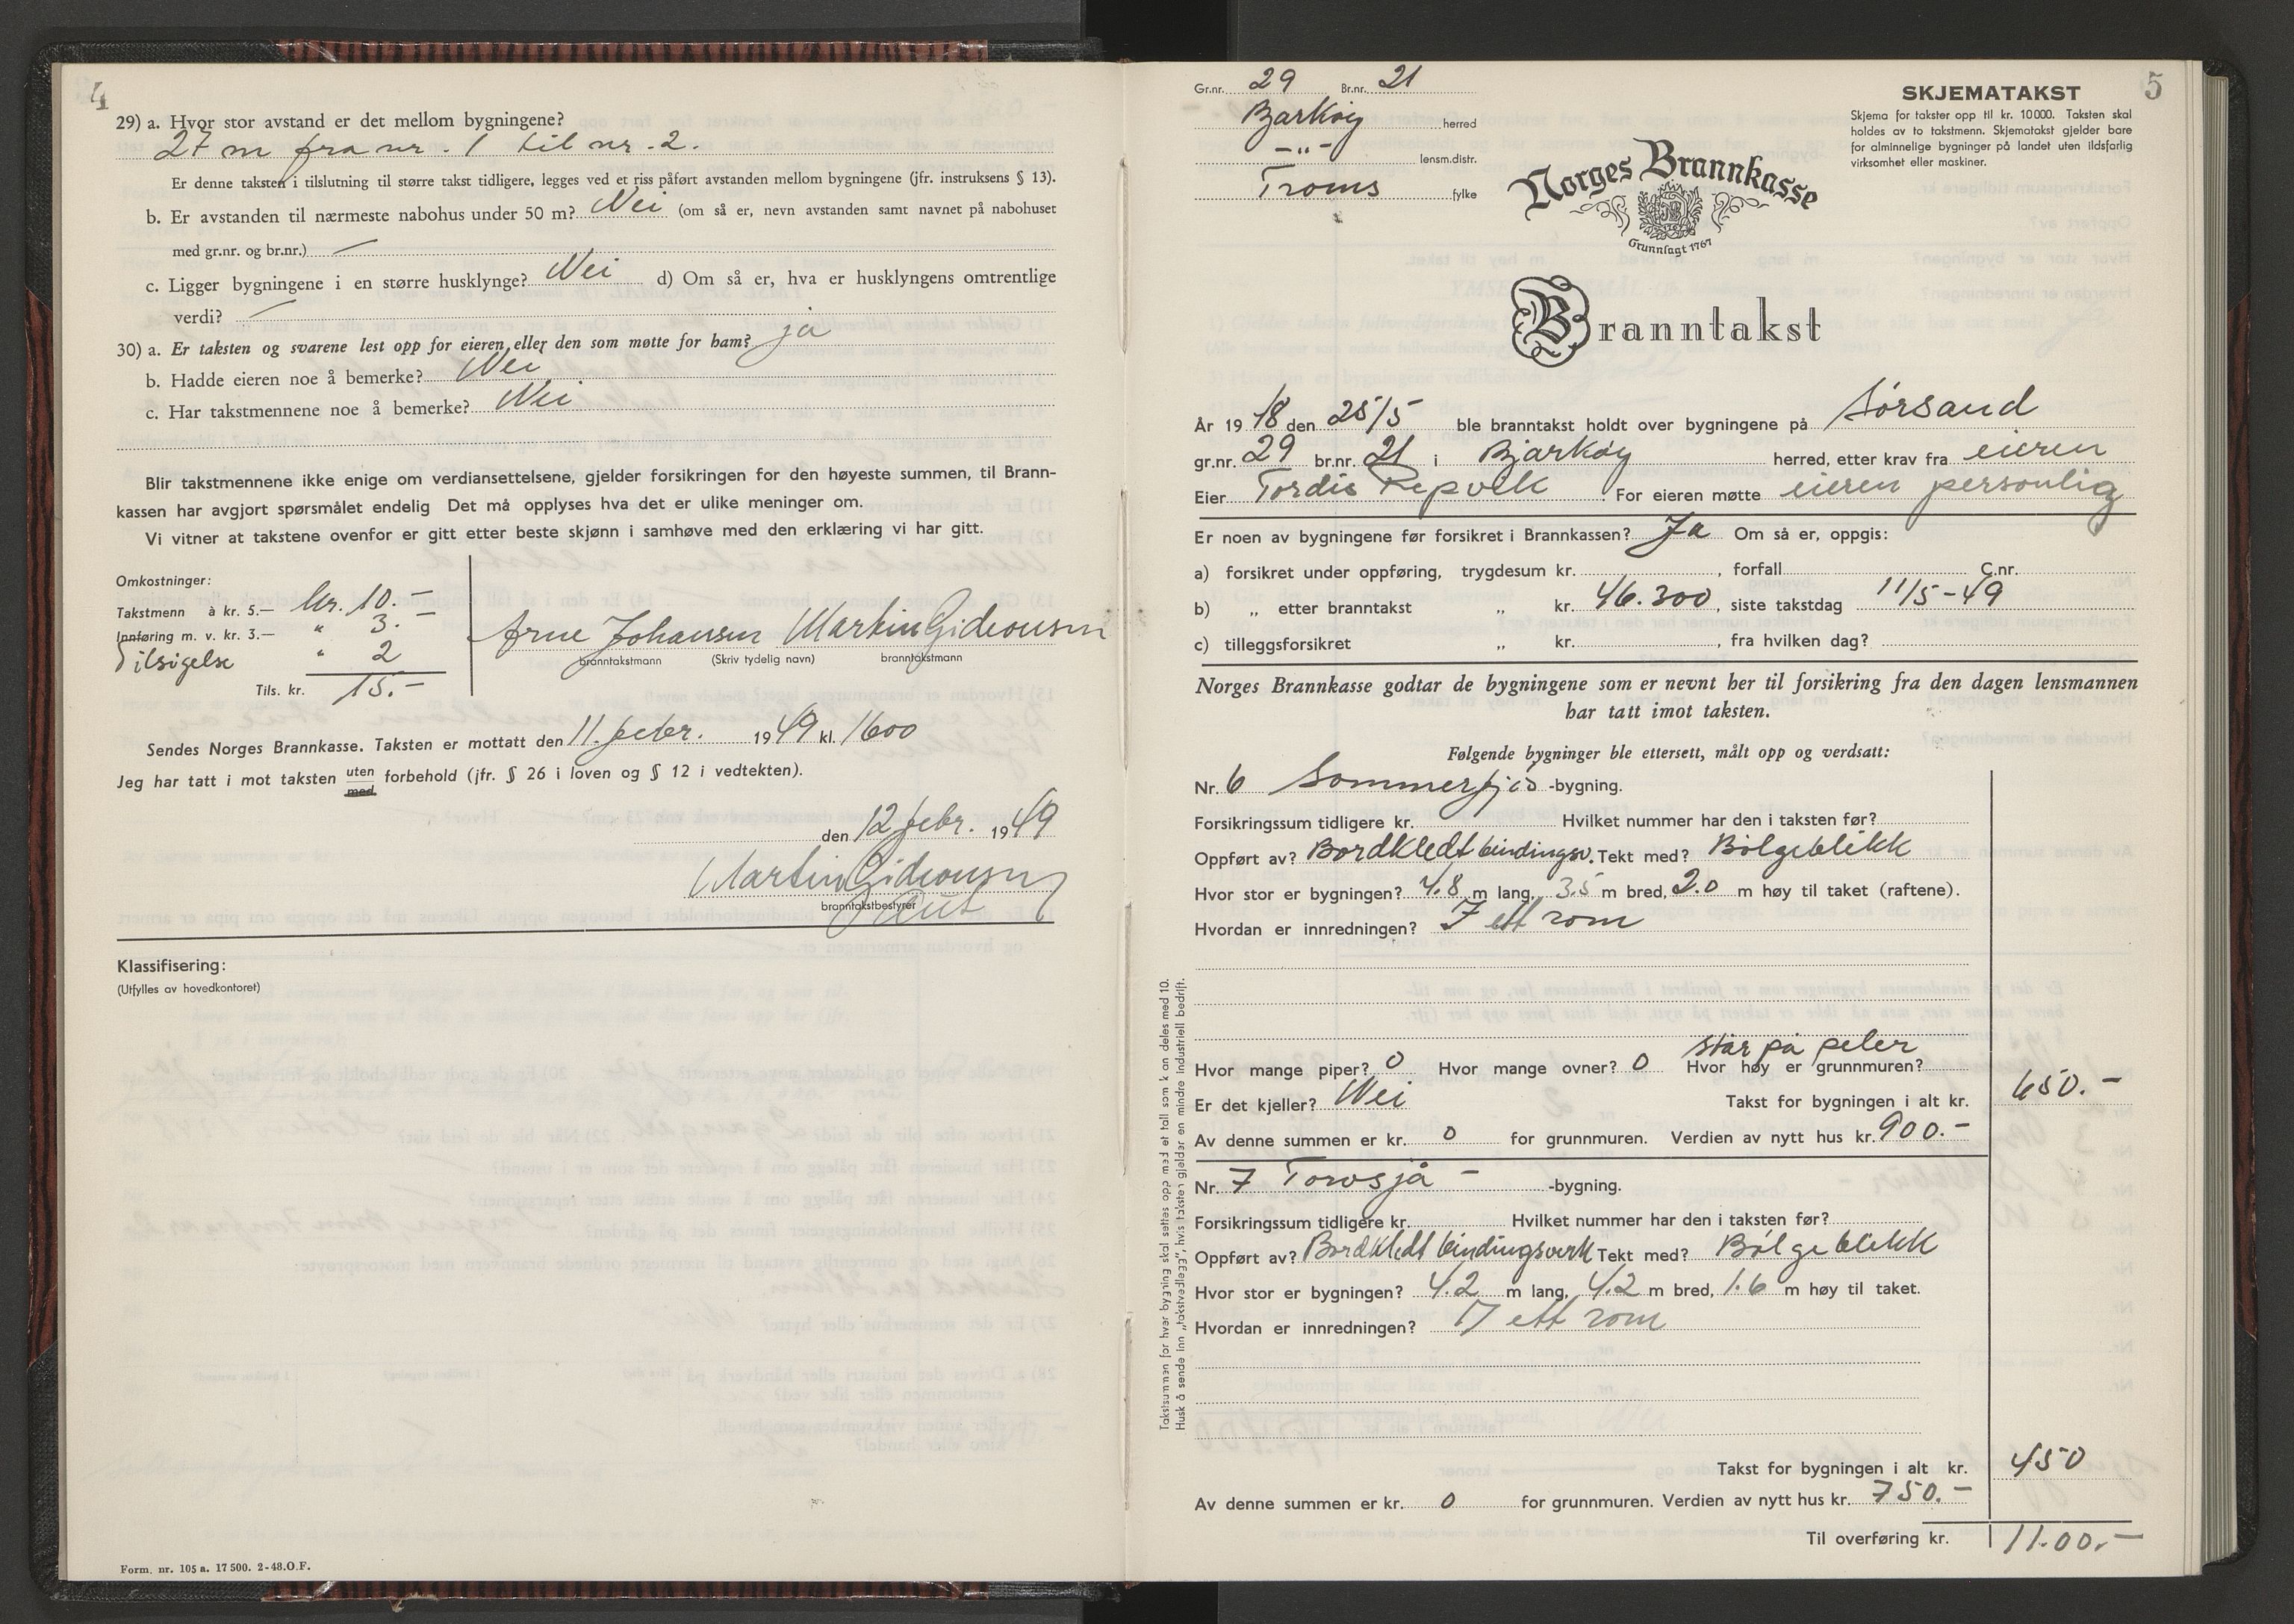 4
29) a. Hvor stor avstand er det mellom bygningene?
27 m fra nr. 1 til nr. 2.
Er denne taksten i tilslutning til større takst tidligere, legges ved et riss påført avstanden mellom bygningene (jfr. instruksens § 13).
b. Er avstanden til nærmeste nabohus under 50 m? Nei (om så er, nevn avstanden samt navnet på nabohuset
med gr.nr. og br.nr.) —
c. Ligger bygningene i en større husklynge? Nei d) Om så er, hva er husklyngens omtrentlige
verdi? —
30) a. Er taksten og svarene lest opp for eieren eller den som møtte for ham? ja
b. Hadde eieren noe å bemerke? Nei
c. Har takstmennene noe å bemerke? Nei
Blir takstmennene ikke enige om verdiansettelsene, gjelder forsikringen for den høyeste summen, til Brann-
kassen har avgjort spørsmålet endelig Det må opplyses hva det er ulike meninger om.
Vi vitner at takstene ovenfor er gitt etter beste skjønn i samhøve med den erklæring vi har gitt.
Omkostninger:
Takstmenn à kr. 5.— kr. 10.—
Innføring m. v. kr. 3.— " 3.—
Tilsigelse " 2
Tils. kr. 15.—
Arne Johansen Martin Gideonsen
branntakstmann (Skriv tydelig navn) branntakstmann
Sendes Norges Brannkasse. Taksten er mottatt den 11. febr. 1949 kl. 1600
Jeg har tatt i mot taksten uten med forbehold (jfr. § 26 i loven og § 12 i vedtekten).
den 12 febr. 1949
Martin Gideonsen
branntakstbestyrer
Klassifisering:
(Utfylles av hovedkontoret)
Form. nr. 105 a. 17 500. 2-48.O.F.
5
Gr.nr. 29 Br.nr. 21
Bjarkøy herred
-"- lensm.distr.
Troms fylke
SKJEMATAKST
Skjema for takster opp til kr. 10000. Taksten skal
holdes av to takstmenn. Skjematakst gjelder bare
for alminnelige bygninger på landet uten ildsfarlig
virksomhet eller maskiner.
Norges Brannkasse
Grunnlagt 1767
Branntakst
År 19 48 den 25/5 ble branntakst holdt over bygningene på Sørsand
gr.nr. 29 br.nr. 21 i Bjarkøy herred, etter krav fra eieren
Eier Tordis Repvik For eieren møtte eieren personlig
Er noen av bygningene før forsikret i Brannkassen? Ja Om så er, oppgis:
a) forsikret under oppføring, trygdesum kr. , forfall C.nr.
b) „ etter branntakst „ kr. 46.300, siste takstdag 11/5-49
c) tilleggsforsikret „ kr. , fra hvilken dag?
Norges Brannkasse godtar de bygningene som er nevnt her til forsikring fra den dagen lensmannen
har tatt imot taksten.
Følgende bygninger ble ettersett, målt opp og verdsatt:
Nr. 6 Sommerfjøs -bygning.
Forsikringssum tidligere kr. Hvilket nummer har den i taksten før?
Oppført av? Bordkledt bindingsv. Tekt med? Bølgeblikk
Hvor stor er bygningen? 4.8 m lang, 3.5 m bred, 2.0 m høy til taket (raftene).
Hvordan er innredningen? I ett rom
Hvor mange piper? 0 Hvor mange ovner? 0 Hvor høy er grunnmuren? står på peler
Er det kjeller? Nei Takst for bygningen i alt kr. 650.—
Av denne summen er kr. 0 for grunnmuren. Verdien av nytt hus kr. 900.—
Nr. 7 Torvsjå — -bygning.
Forsikringssum tidligere kr. Hvilket nummer har den i taksten før?
Oppført av? Bordkledt bindingsverk Tekt med? Bølgeblikk
Hvor stor er bygningen? 4.2 m lang, 4.2 m bred, 1.6 m høy til taket.
Hvordan er innredningen? I ett rom
Takst for bygningen i alt kr. 450
Av denne summen er kr. 0 for grunnmuren. Verdien av nytt hus kr. 750.—
Til overføring kr. 11.00.—
Takstsummen for hver bygning skal settes opp med et tall som kan deles med 10.
Husk å sende inn „takstvedlegg", hvis taksten gjelder en mindre industriell bedrift.